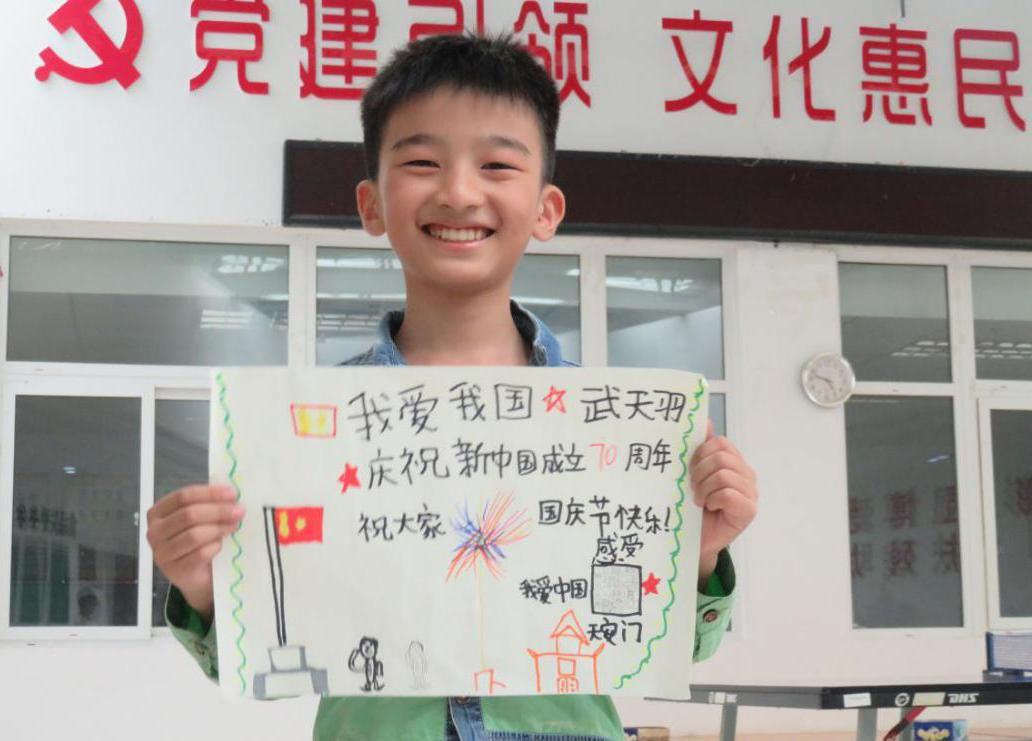 党建引领 文化惠民
我爱我国 武天羽
庆祝新中国成立70周年
祝大家 国庆节快乐!
感受
我爱中国
天安门
DHS